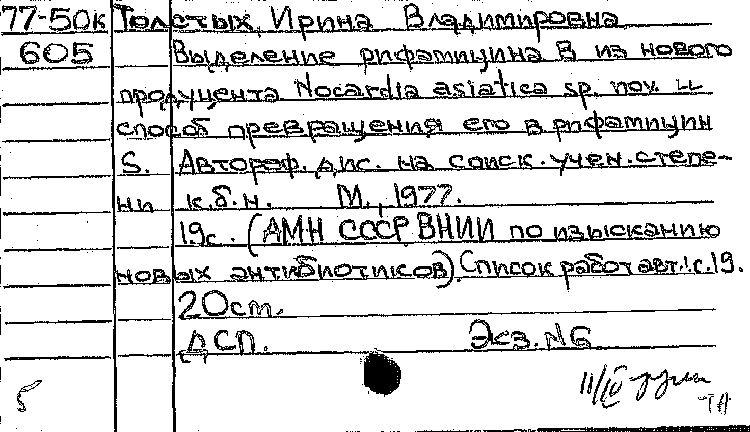 77-50к Толстых, Ирина Владимировна
605 Выделение рифамицина В из нового
продуцента Nocardia asiatica sp. nov. и
способ превращения его в рифамицин
S. Автореф. дис. на соиск. учен. степе-
ни к.б.н. М., 1977.
19с. (АМН СССР ВНИИ по изысканию
новых антибиотиков). Список работ авт.: с.19.
20ст.
ДСП. Экз. №6
5 11/IV